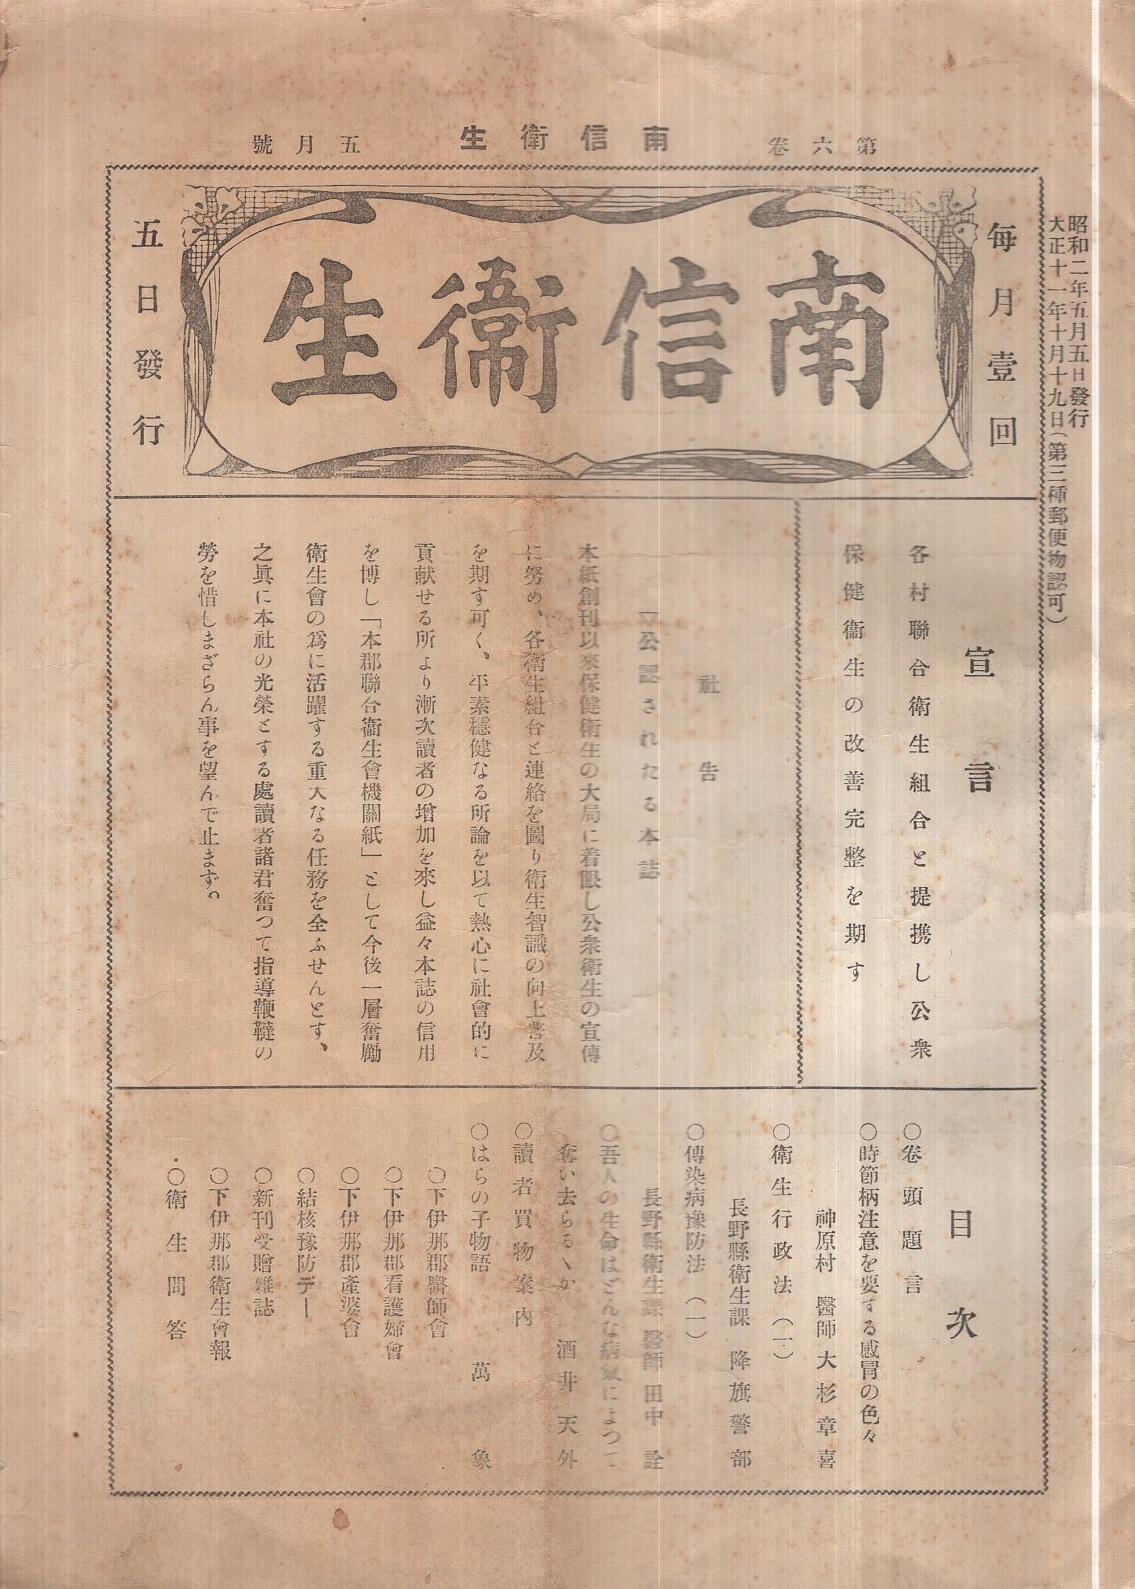 昭和二年五月五日發行
大正十一年十月十九日(第三種郵便物認可)
第六卷
南信衛生
五月號
每月壹回
南信衞生
五日發行
宣言
各村聯合衛生組合と提携し公衆
保健衞生の改善完整を期す
社告
▽公認されたる本誌
本紙創刊以來保健衞生の大局に着眼し公衆衛生の宣傳
に努め、各衞生組合と連絡を圖り衛生智識の向上普及
を期す可く、平素穩健なる所論を以て熱心に社會的に
貢献せる所より漸次讀者の增加を來し益々本誌の信用
を博し「本郡聯合衞生會機關紙」として今後一層奮勵
衛生會の爲に活躍する重大なる任務を全ふせんとす、
之眞に本社の光榮とする處讀者諸君奮つて指導鞭韃の
勞を惜しまざらん事を望んで止まず。
目次
○卷頭題言
○時節柄注意を要する感冒の色々
神原村 醫師 大杉章喜
○衛生行政法(一)
長野縣衛生課 降旗警部
○傳染病豫防法(一)
長野縣衛生課 醫師 田中詮
○吾人の生命はどんな病氣によつて
奪い去らるゝか 酒井天外
○讀者買物案内
○はらの子物語 萬象
○下伊那郡醫師會
○下伊那郡看護婦會
○下伊那郡產婆會
○結核豫防デー
○新刊受贈雜誌
○下伊那郡衛生會報
○衛生問答